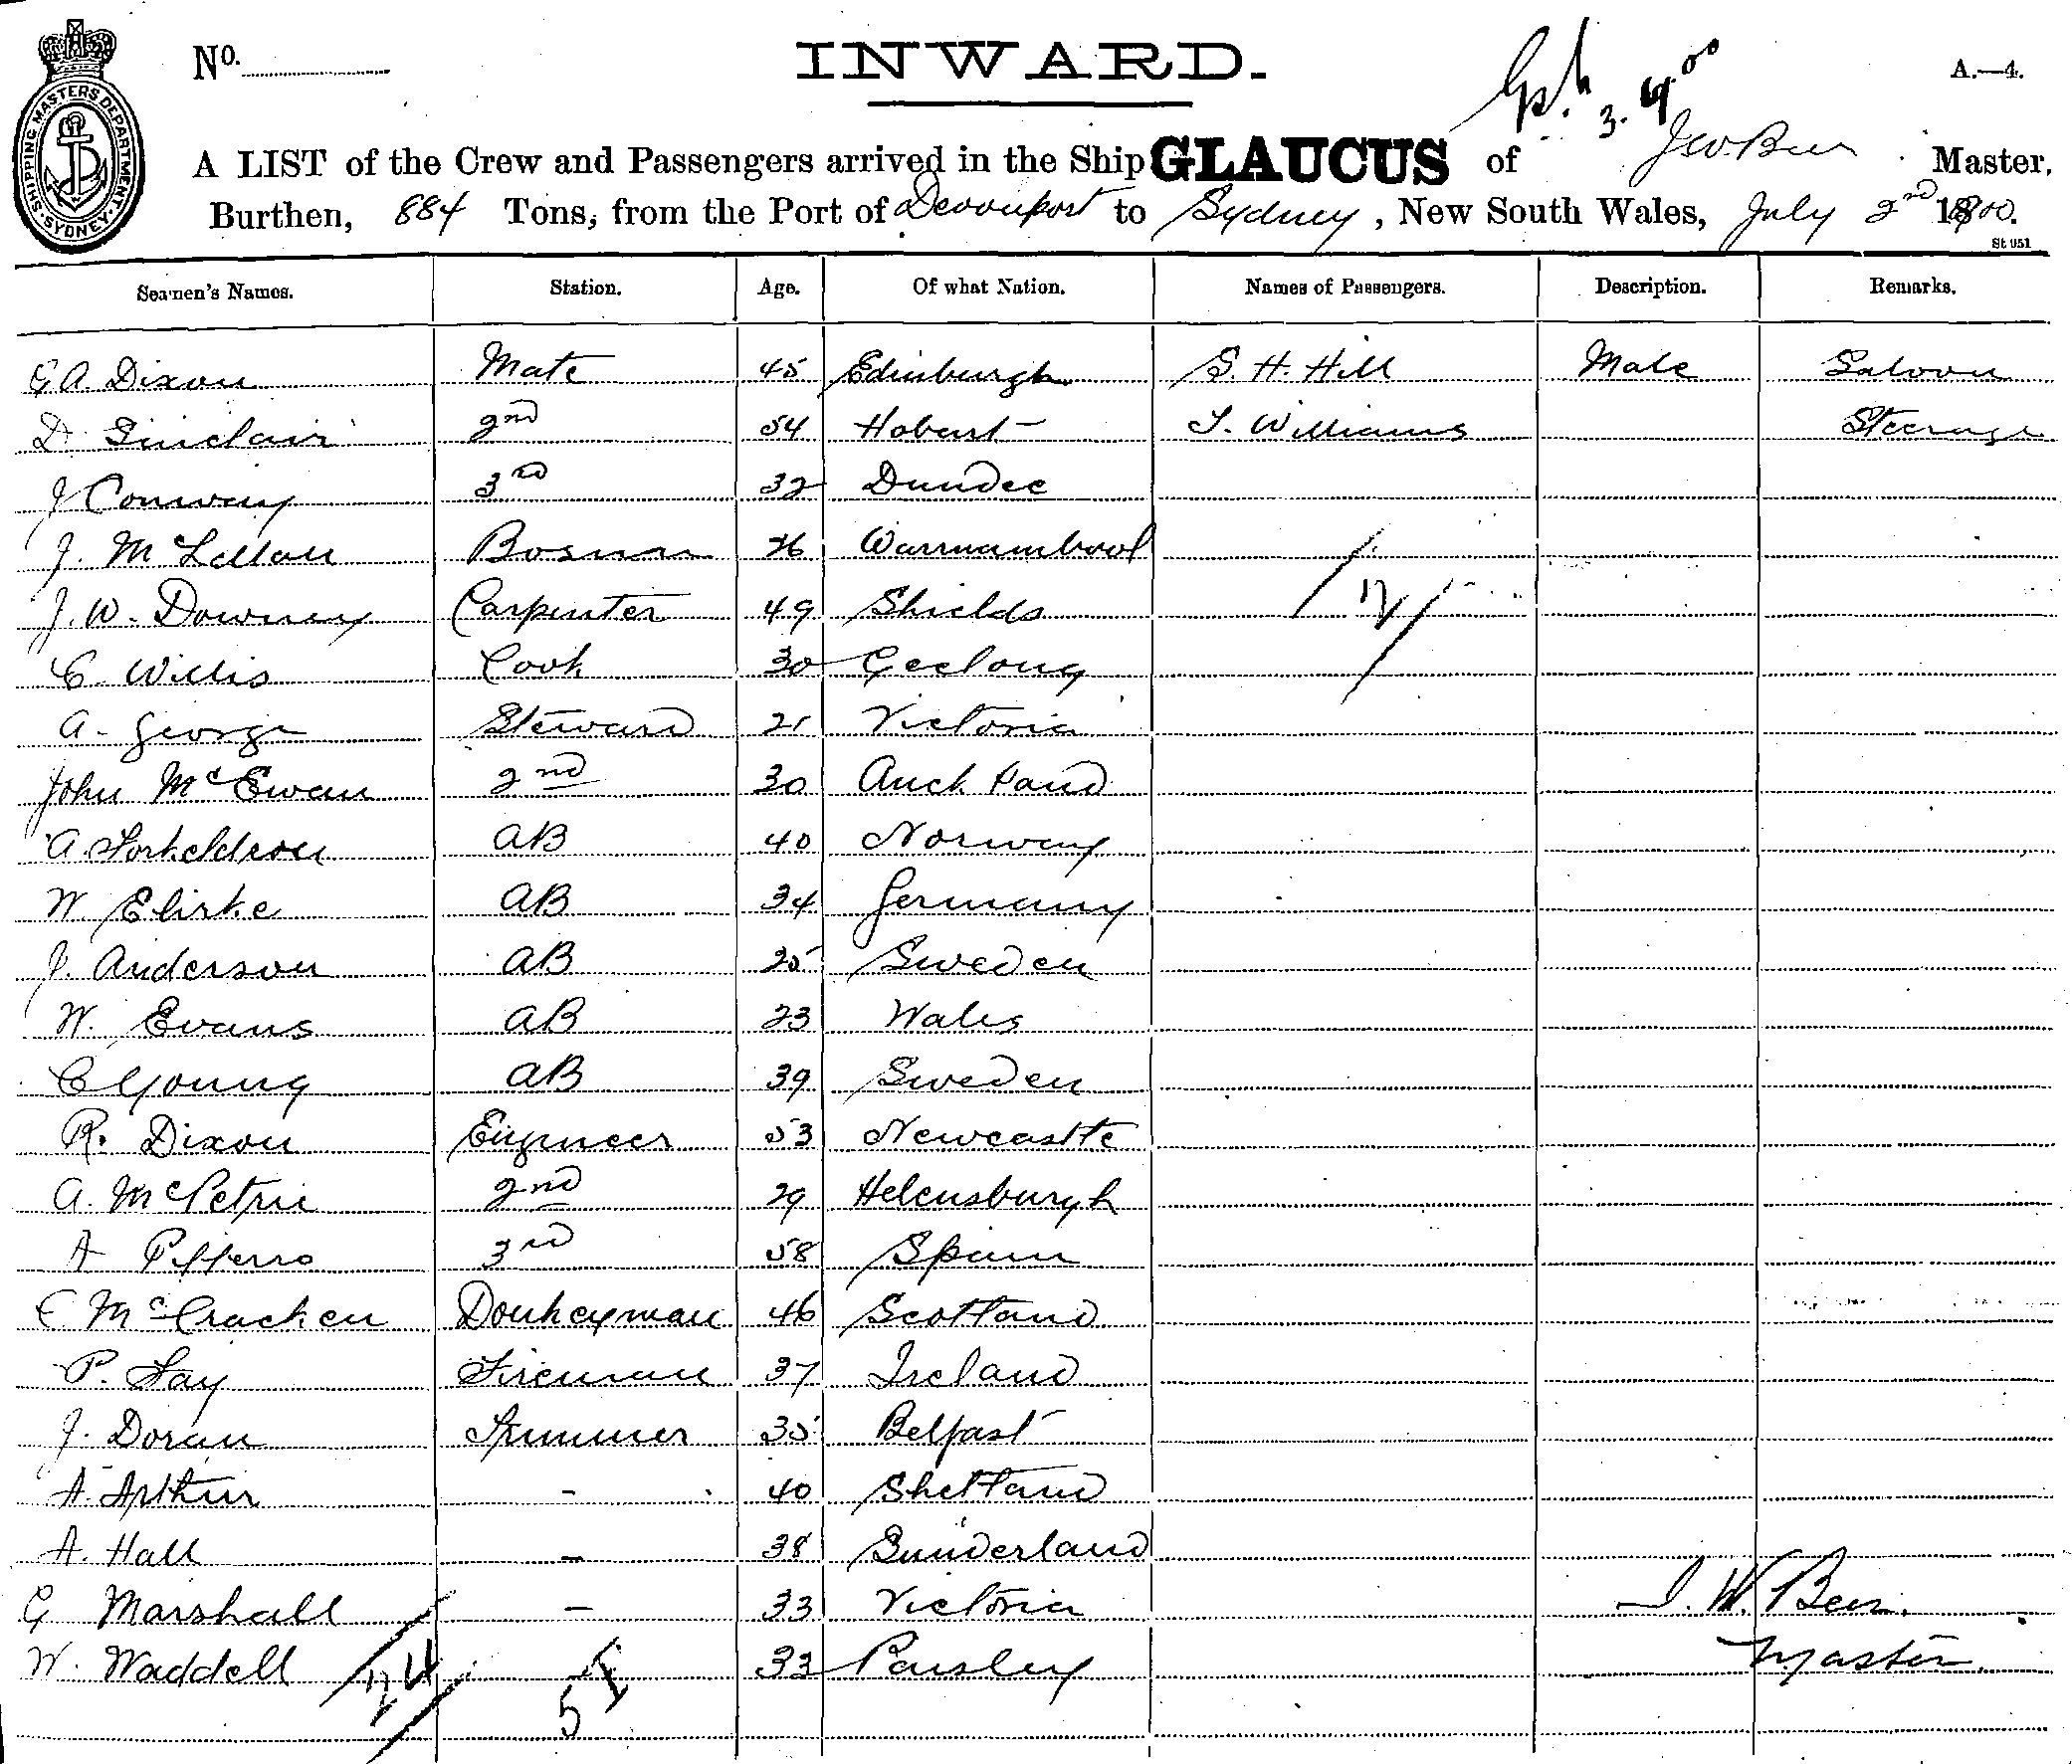 No. INWARD. A.—4.
3.
A LIST of the Crew and Passengers arrived in the Ship GLAUCUS of J.W. Beer Master,
Burthen, 884 Tons, from the Port of Devonport to Sydney, New South Wales, July 2nd 1900.
St 951
SHIPPING MASTERS DEPARTMENT SYDNEY
Seamen's Names. Station. Age. Of what Nation. Names of Passengers. Description. Remarks.
G A. Dixon Mate 45 Edinburgh S. H. Hill Male Saloon
D. Sinclair 2nd 54 Hobart T. Williams Steerage
J Conway 3rd 32 Dundee
J. McLellan Bosun 26 Warrnambool
J. W. Downey Carpenter 49 Shields
C. Willis Cook 30 Geelong
A. George Steward 21 Victoria
John McEwan 2nd 30 Auckland
A. AB 40 Norway
W. AB 34 Germany
J. Anderson AB 25 Sweden
W. Evans AB 23 Wales
C Young AB 39 Sweden
R. Dixon Engineer 53 Newcastle
A. McPetrie 2nd 29 Helensburgh
A 3rd 58 Spain
McCracken Donkeyman 46 Scotland
P. Fay Fireman 37 Ireland
J. Doran Trimmer 35 Belfast
A. Arthur - 40 Shetland
A. Hall - 38 Sunderland
G Marshall - 33 Victoria J. W. Beer.
W. Waddell 24 33 Paisley Master.